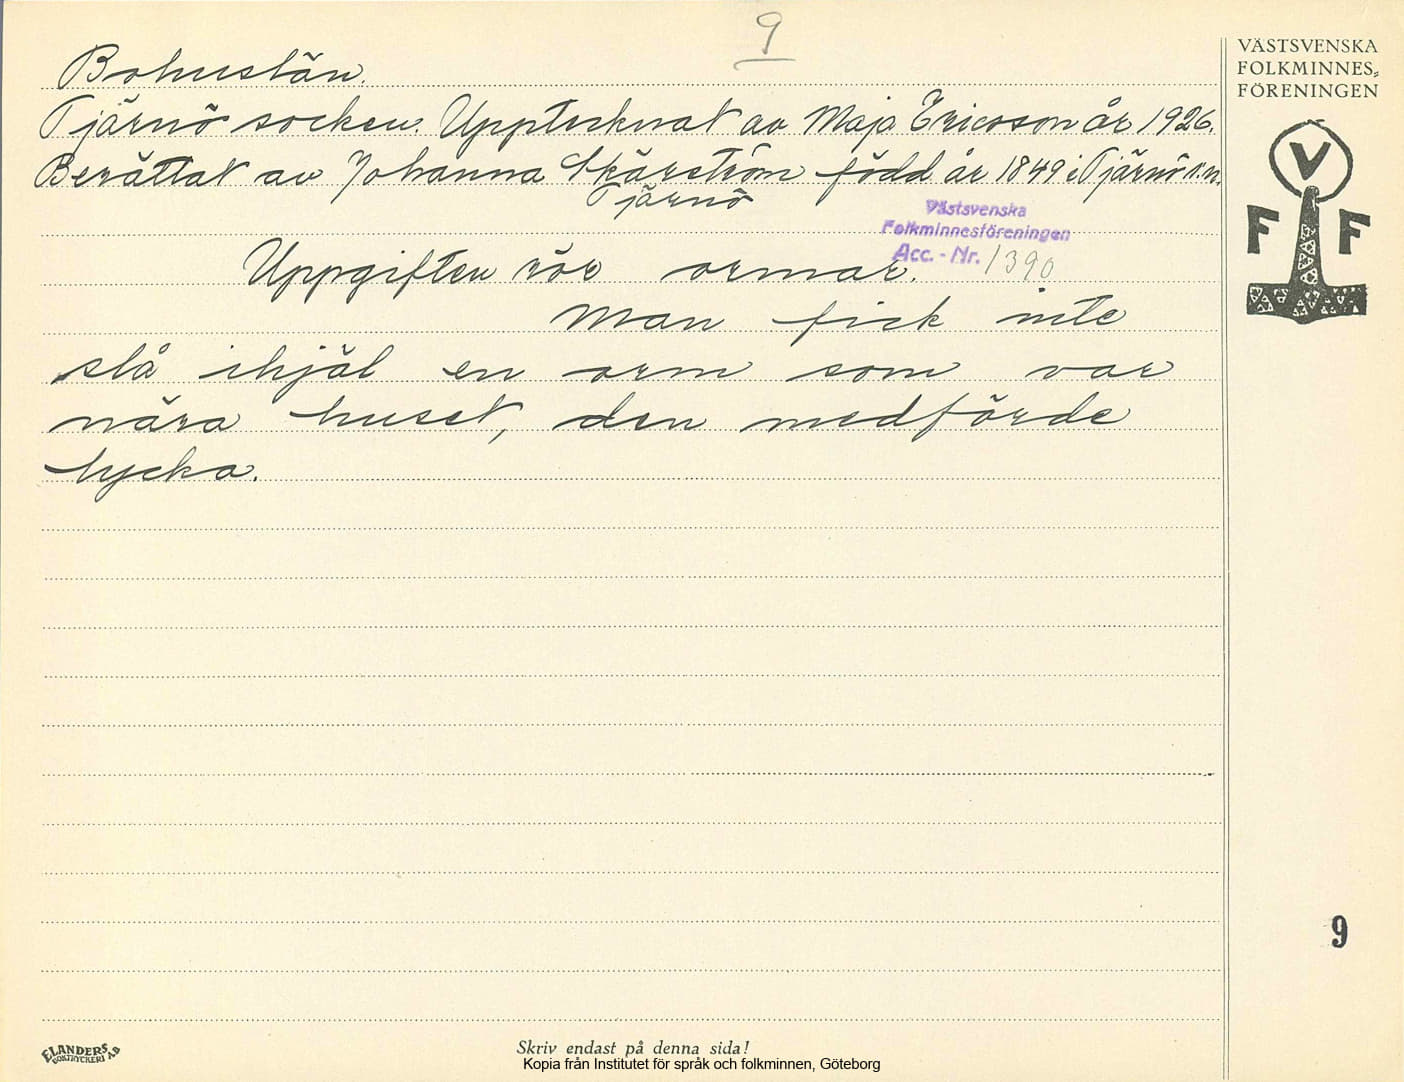 9
Bohuslän.
Tjärnö socken. Upptecknat av Maja Ericsson år 1926.
Berättat av Johanna Skärström född år 1849 i Tjärnö s:n.
Tjärnö
Västsvenska
Folkminnesföreningen
Acc. - Nr. 1390
Uppgiften rör ormar.
Man fick inte
slå ihjäl en orm som var
nära huset, den medförde
lycka.
VÄSTSVENSKA
FOLKMINNES=
FÖRENINGEN
V
F F
9
ELANDERS
BOKTRYCKERI AB
Skriv endast på denna sida!
Kopia från Institutet för språk och folkminnen, Göteborg